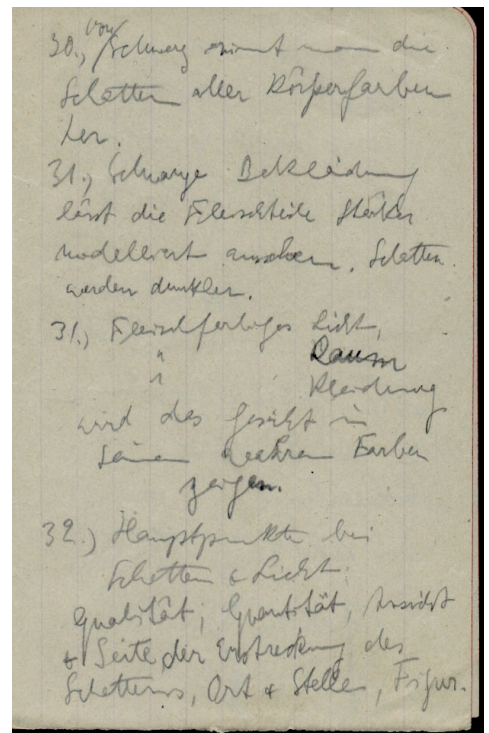 30., von Schwarz nimmt man die
Schatten aller Körperfarben
her.
31., Schwarze Bekleidung
lässt die Fleischteile stärker
modelliert aussehen. Schatten
werden dunkler.
31.) Fleischfarbiges Licht,
" Raum
" Kleidung
wird das Gesicht in
seinen wahren Farben
zeigen.
32.) Hauptpunkte bei
Schatten & Licht.
Qualität, Quantität, Ansicht
& Seite, der Erstreckung des
Schattens, Ort & Stelle, Figur.